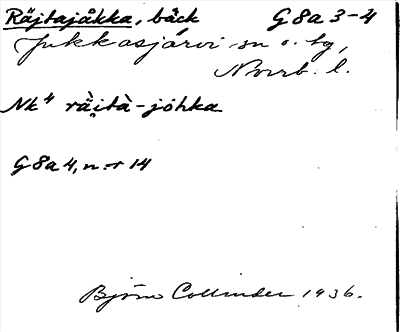 Räjtajåkka, bäck G 8 a 3-4
Jukkasjärvi sn o. tg,
Norrb. l.
Nk⁴ rà̭ità-jóhka
G 8 a 4, n:r 14
Björn Collinder 1936.